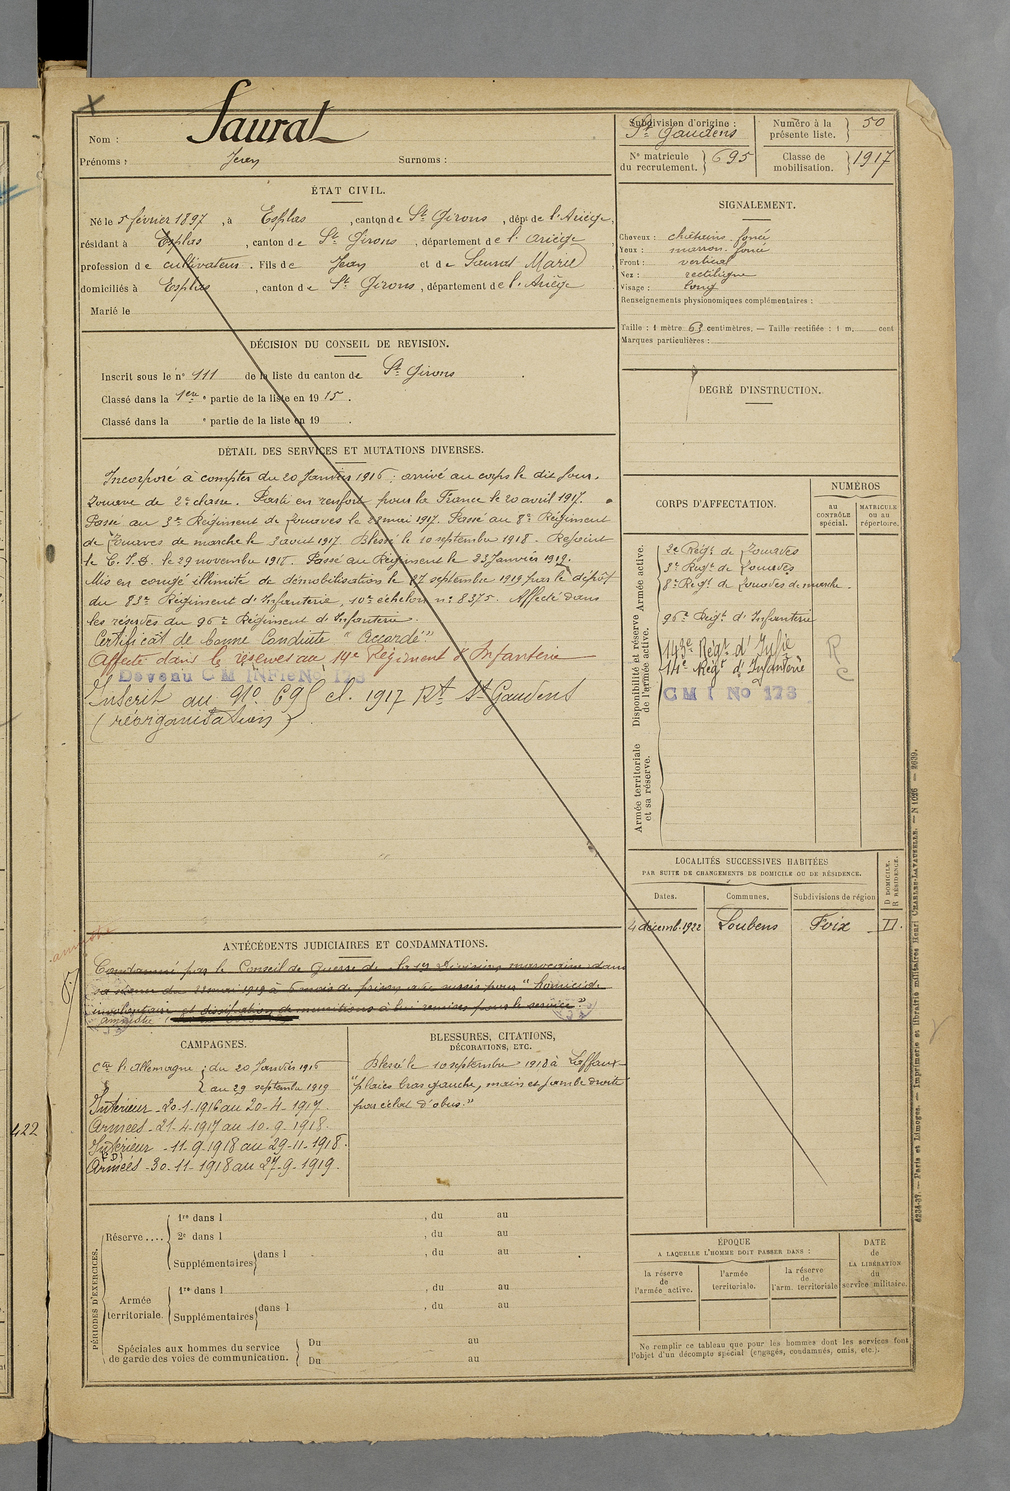 Nom : Saurat
Prénoms : Jean Surnoms :
Subdivision d'origine : St Gaudens
Numéro à la présente liste. 50
No matricule du recrutement. 695
Classe de mobilisation. 1917
ÉTAT CIVIL.
Né le 5 février 1897, à Esplas, canton de St Girons, dépt de l'Ariège,
résidant à Esplas, canton de St Girons, département de l'Ariège,
profession de cultivateur. Fils de Jean et de Saurat Marie
domiciliés à Esplas, canton de St Girons, département de l'Ariège
Marié le
SIGNALEMENT.
Cheveux : châtains foncé
Yeux : marron foncé
Front : vertical
Nez : rectiligne
Visage : long
Renseignements physionomiques complémentaires :
Taille : 1 mètre 63 centimètres. — Taille rectifiée : 1 m. cent
Marques particulières :
DÉCISION DU CONSEIL DE REVISION.
Inscrit sous le no 111 de la liste du canton de St Girons.
Classé dans la 1ere partie de la liste en 1915.
Classé dans la e partie de la liste en 19 .
DEGRÉ D'INSTRUCTION.
DÉTAIL DES SERVICES ET MUTATIONS DIVERSES.
Incorporé à compter du 20 Janvier 1916 ; arrivé au corps le dit jour.
Zouave de 2e classe. Parti en renfort pour la France le 20 avril 1917.
Passé au 3e Régiment de Zouaves le 28 mai 1917. Passé au 8e Régiment
de Zouaves de marche le 3 août 1917. Blessé le 10 septembre 1918. Rejoint
le C.I.D. le 29 novembre 1918. Passé au Régiment le 23 Janvier 1919.
Mis en congé illimité de démobilisation le 27 septembre 1919 par le dépôt
du 83e Régiment d'Infanterie, 10e échelon no 8375. Affecté dans
les réserves du 96e Régiment d'Infanterie.
Certificat de bonne Conduite "Accordé"
Affecté dans le réserves au 14e Régiment d'Infanterie
Devenu C M INFIe No 178
Inscrit au No 695 cl. 1917 Rt St Gaudens
(réorganisation)
CORPS D'AFFECTATION.
NUMÉROS
AU CONTRÔLE spécial.
MATRICULE ou au répertoire.
Armée active.
2e Régt de Zouaves
3e Régt de Zouaves
8e Régt de Zouaves de marche.
Disponibilité et réserve de l'armée active.
96e Régt d'Infanterie
143e Régt d'Infie
14e Régt d'Infanterie
C M I No 178
R
C
Armée territoriale et sa réserve.
LOCALITÉS SUCCESSIVES HABITÉES
PAR SUITE DE CHANGEMENTS DE DOMICILE OU DE RÉSIDENCE.
Dates. Communes. Subdivisions de région D DOMICILE. R RÉSIDENCE.
4 décemb. 1922 Loubens Foix D.
ANTÉCÉDENTS JUDICIAIRES ET CONDAMNATIONS.
amnistié
Condamné par le Conseil de Guerre de la 1re Division marocaine dans
sa séance du 22 mai 1919 à 6 mois de prison avec sursis pour "homicide
involontaire et dissipation de munitions à lui remises pour le service"
amnistié
CAMPAGNES.
Cte l'Allemagne : du 20 Janvier 1916
au 29 septembre 1919
Intérieur - 20-1-1916 au 20-4-1917.
Armées - 21-4-1917 au 10-9-1918.
Intérieur - 11-9-1918 au 29-11-1918.
Armées - 30-11-1918 au 27-9-1919.
BLESSURES, CITATIONS,
DÉCORATIONS, ETC.
Blessé le 10 septembre 1918 à Laffaux
"plaies bras gauche, main et jambe droite
par éclat d'obus."
422
PÉRIODES D'EXERCICES.
Réserve....
1re dans l , du au
2e dans l , du au
Supplémentaires dans l , du au
Armée territoriale.
1re dans l , du au
Supplémentaires dans l , du au
Spéciales aux hommes du service de garde des voies de communication.
Du au
Du au
ÉPOQUE
A LAQUELLE L'HOMME DOIT PASSER DANS :
la réserve de l'armée active.
l'armée territoriale.
la réserve de l'arm. territoriale
DATE de LA LIBÉRATION du service militaire.
Ne remplir ce tableau que pour les hommes dont les services font
l'objet d'un décompte spécial (engagés, condamnés, omis, etc.).
4234-37. — Paris et Limoges. — Imprimerie et librairie militaires Henri CHARLES-LAVAUZELLE. — N 1026 — 2639.